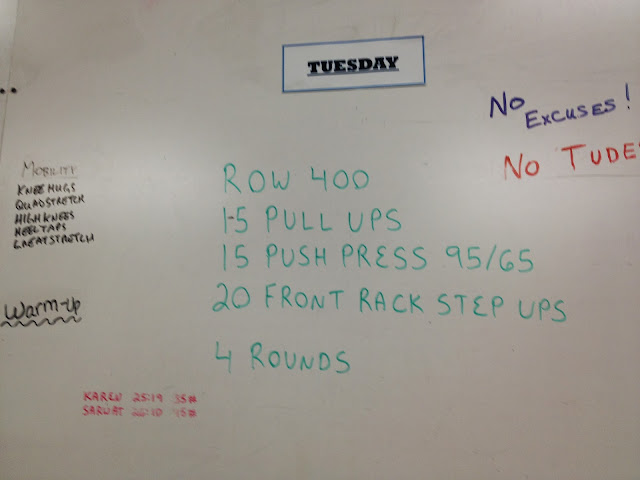 TUESDAY
No
EXCUSES!
No TUDE
MOBILITY
KNEE HUGS
QUADSTRETCH
HIGH KNEES
HEEL TAPS
STRETCH
Warm-up
ROW 400
1-5 PULL UPS
15 PUSH PRESS 95/65
20 FRONT RACK STEP UPS
4 ROUNDS
KAREN 25:19 35#